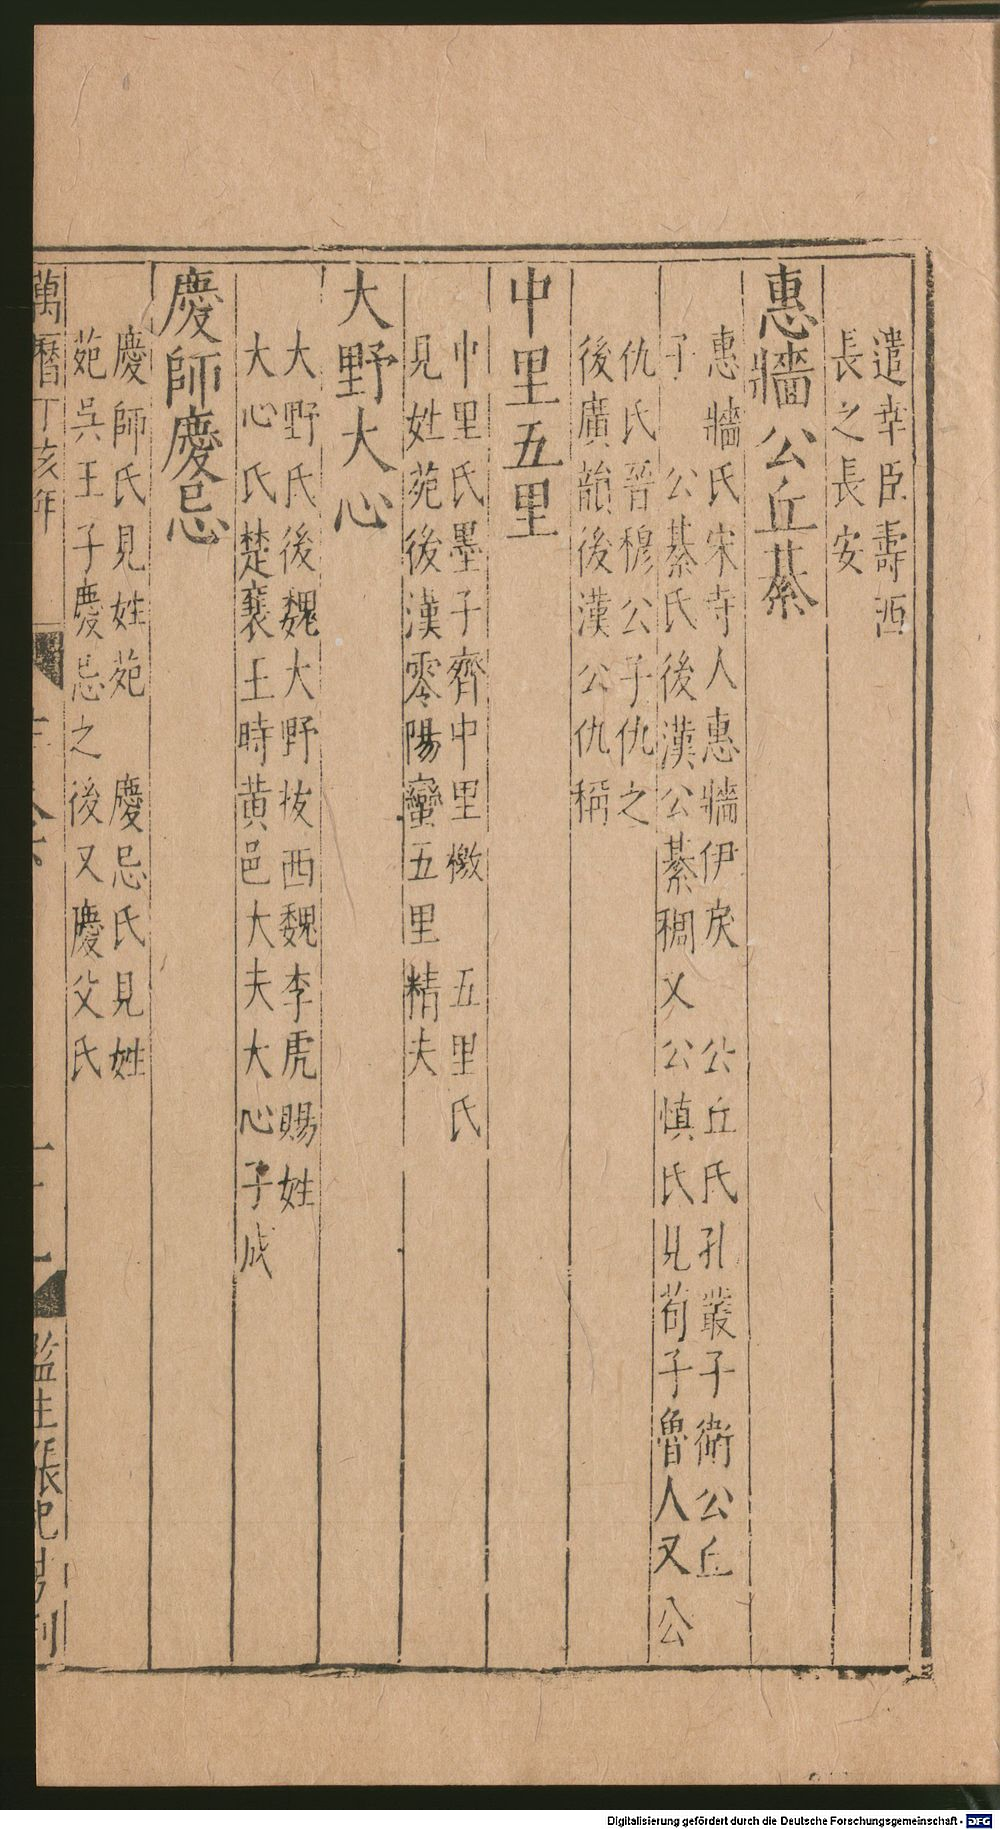 遣幸臣壽西
長之長安
惠牆公丘綦
惠牆氏宋寺人惠牆伊戾 公丘氏孔叢子衛公丘
子 公綦氏後漢公綦稠又公慎氏見荀子魯人又公
仇氏晉穆公子仇之
後廣韻後漢公仇稱
中里五里
中里氏墨子齊中里檄 五里氏
見姓苑後漢零陽蠻五里精夫
大野大心
大野氏後魏大野拔西魏李虎賜姓
大心氏楚襄王時黄邑大夫大心子成
慶師慶忌
慶師氏見姓苑 慶忌氏見姓
苑吳王子慶忌之後又慶父氏
萬曆丁亥年
十一
監生張 刊
Digitalisierung gefördert durch die Deutsche Forschungsgemeinschaft - DFG